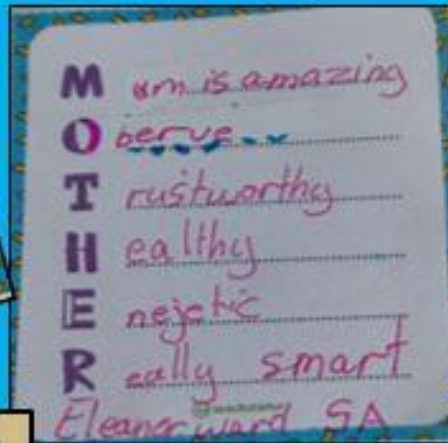 Mum is amazing
Oberve
Trustworthy
Healthy
Enejetic
Really smart
Eleanor ward 5A